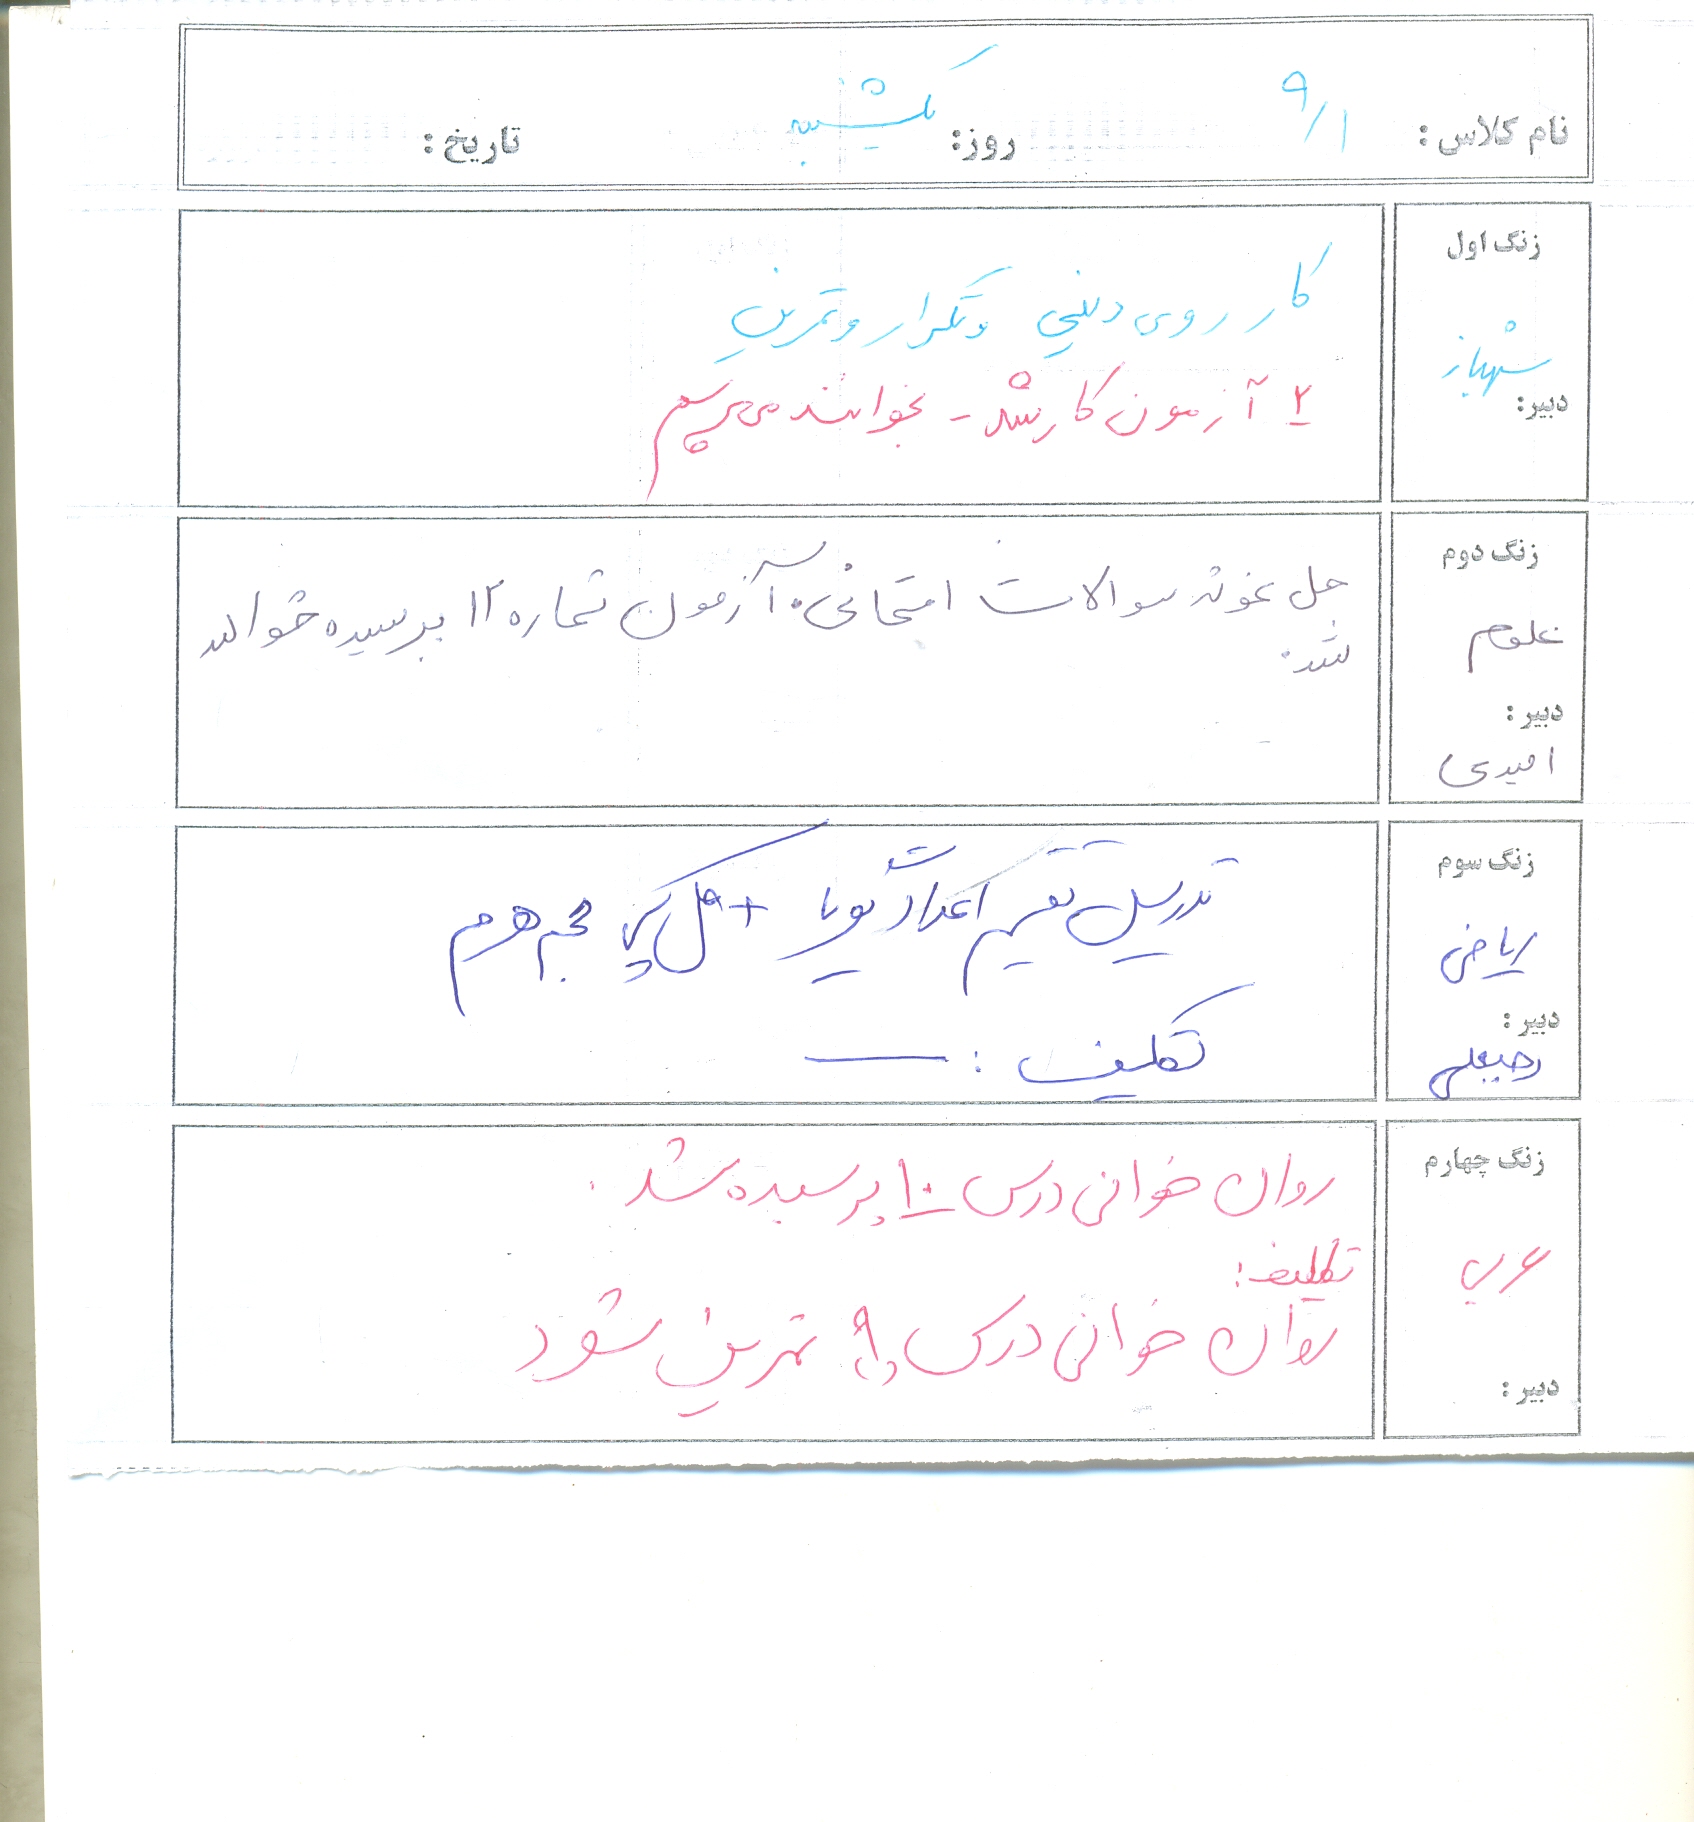 نام کلاس : ۹/۱ روز: یکشنبه تاریخ :
زنگ اول
شهباز
دبیر:
کار روی دینی و تکرار و تمرین
۲ آزمون کار شد - بخوانند می پرسیم
زنگ دوم
علوم
دبیر :
امیدی
حل نمونه سوالات امتحانی. آزمون شماره ۱۲ پرسیده خواهد
شد.
زنگ سوم
ریاضی
دبیر :
رجبعلی
تدریس تقسیم اعداد گویا + حجم هرم
تکلیف : ــــ
زنگ چهارم
عربی
دبیر :
روان خوانی درس ۱۰ پرسیده شد .
تکلیف :
روان خوانی درس ۹ تمرین شود